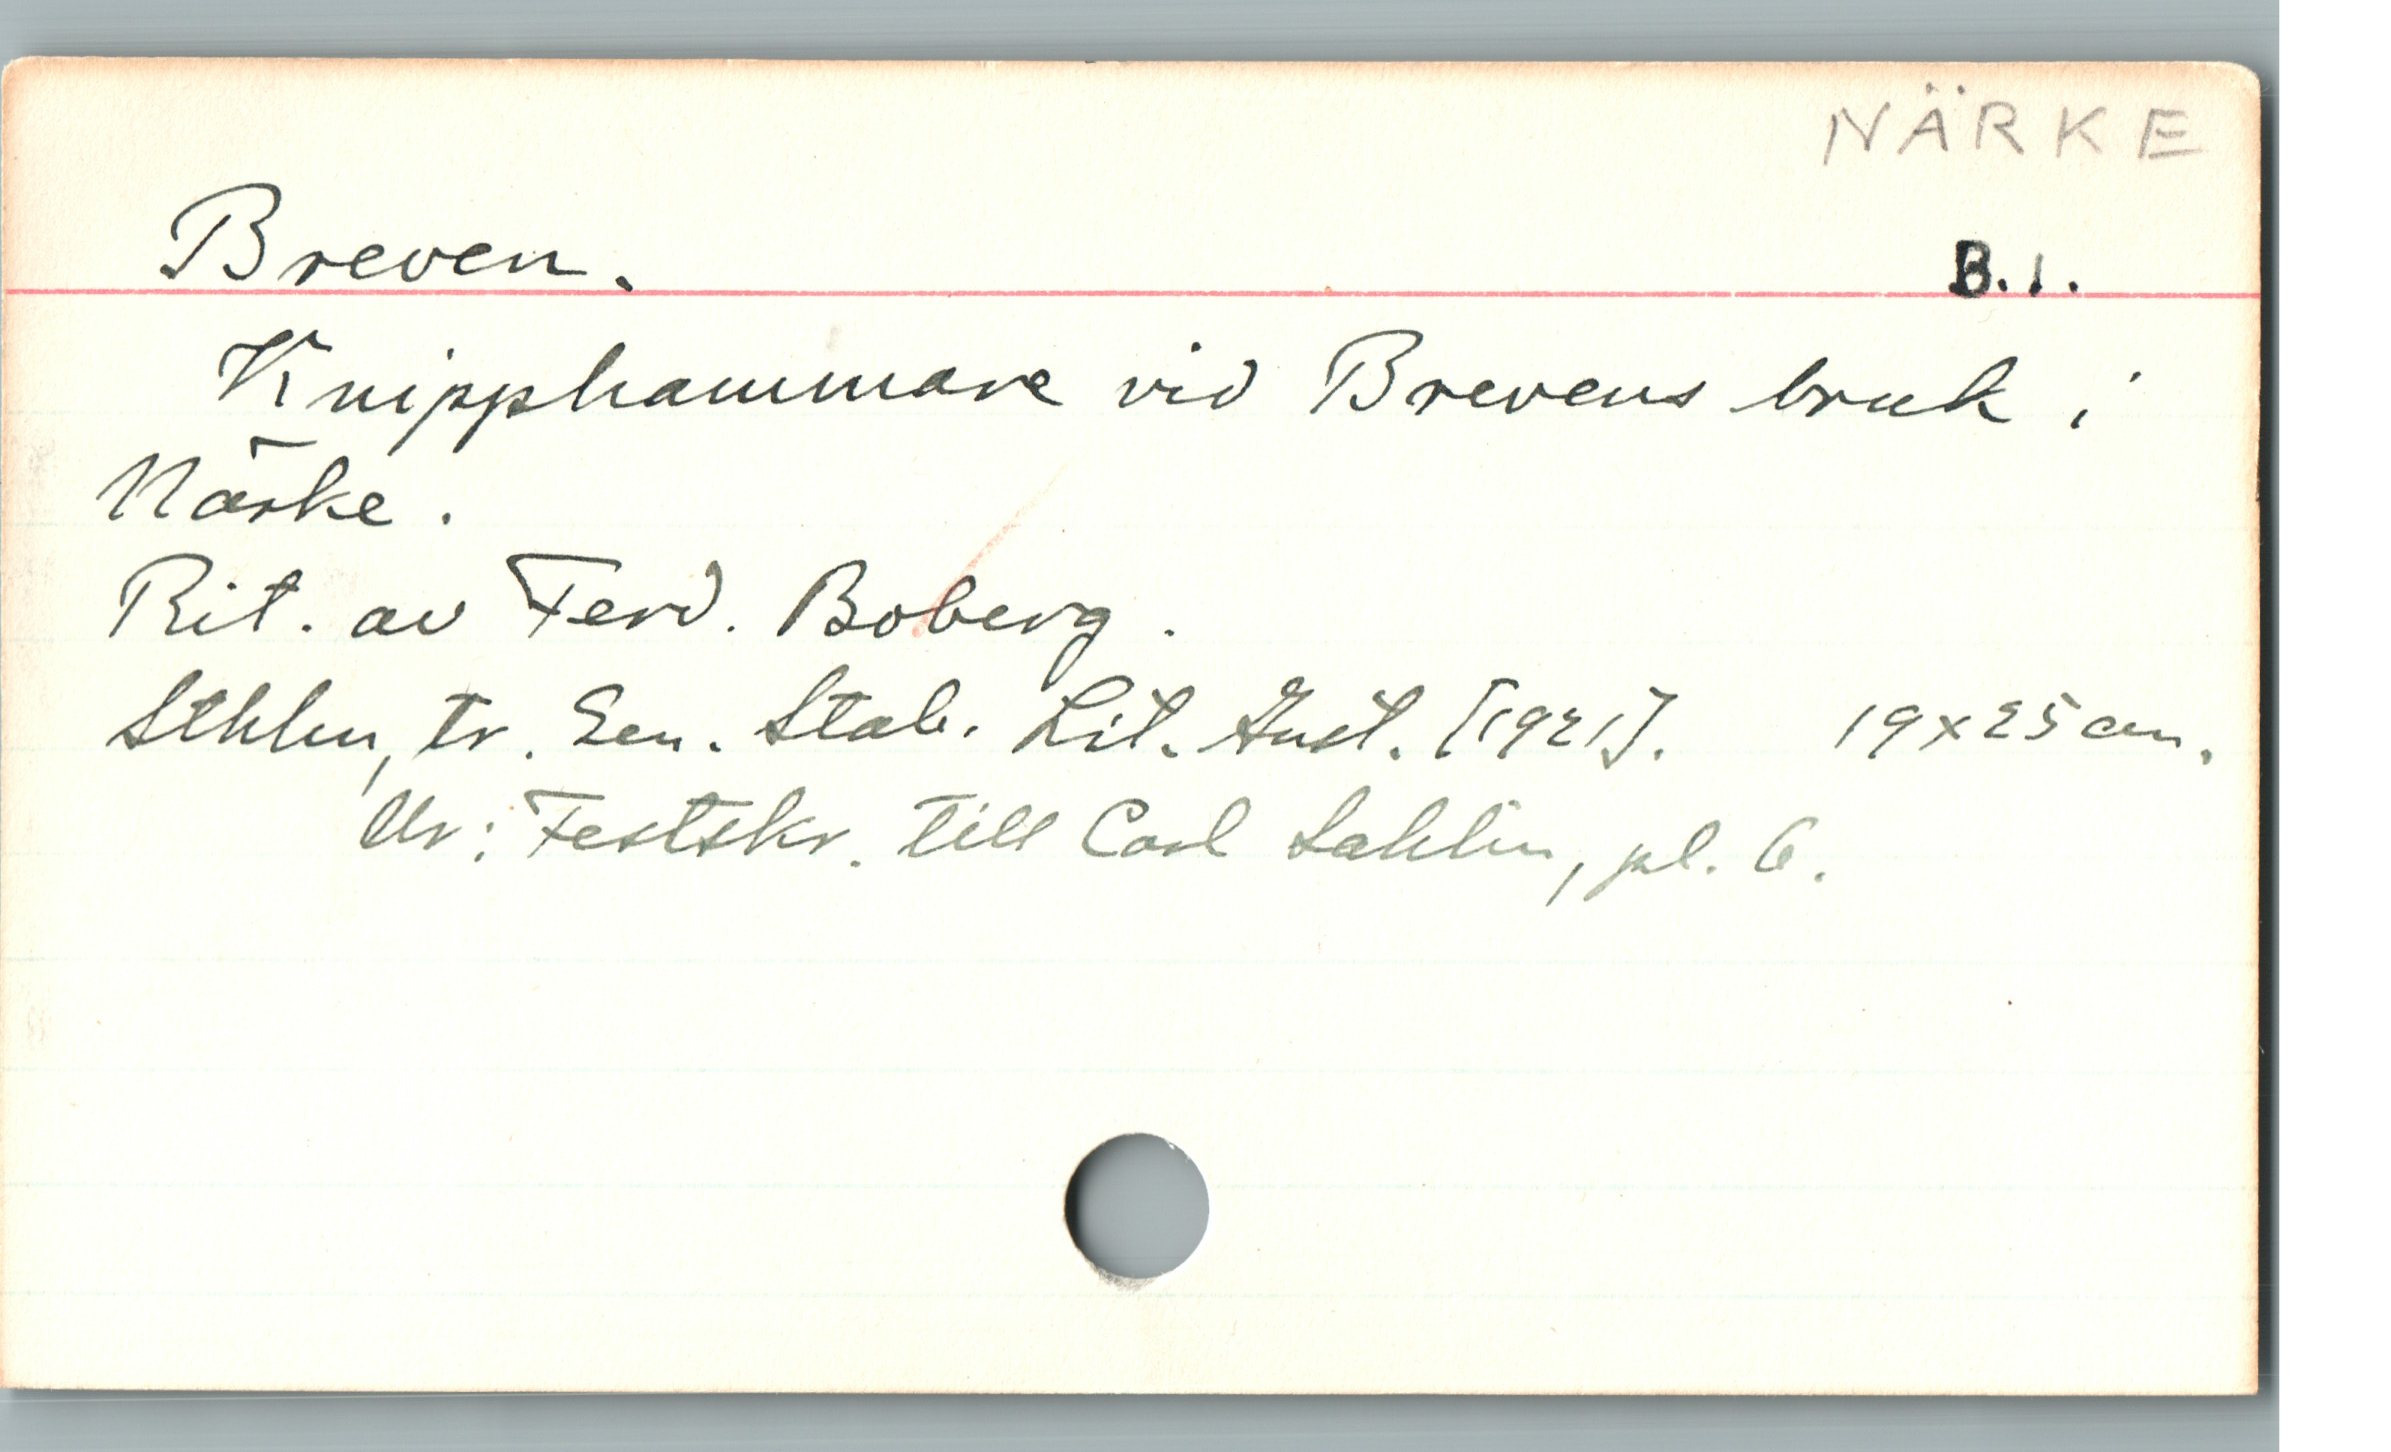 NÄRKE
Breven. B.1.
Knipphammare vid Brevens bruk i
Närke.
Rit. av Ferd. Boberg.
Sthlm, tr. Gen. Stab. Lit. Anst. [1921]. 19x25 cm.
Ur: Festskr. till Carl Sahlin, pl. 6.